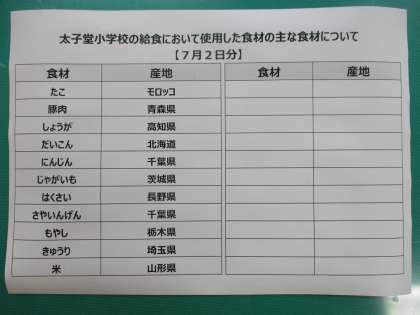 太子堂小学校の給食において使用した食材の主な食材について
【７月２日分】
食材 産地 食材 産地
たこ モロッコ
豚肉 青森県
しょうが 高知県
だいこん 北海道
にんじん 千葉県
じゃがいも 茨城県
はくさい 長野県
さやいんげん 千葉県
もやし 栃木県
きゅうり 埼玉県
米 山形県